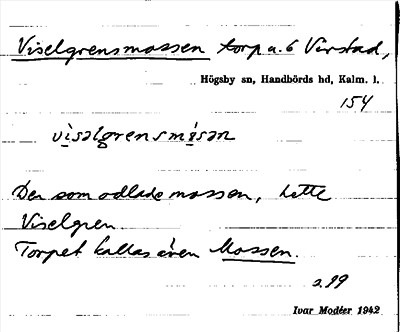 Viselgrensmossen torp u. 6 Virstad,
Högsby sn, Handbörds hd, Kalm. l.
154
visəlgrensmåsən
Den som odlade mossen, hette
Viselgren
Torpet kallas även Mossen.
s. 99
Ivar Modéer 1942